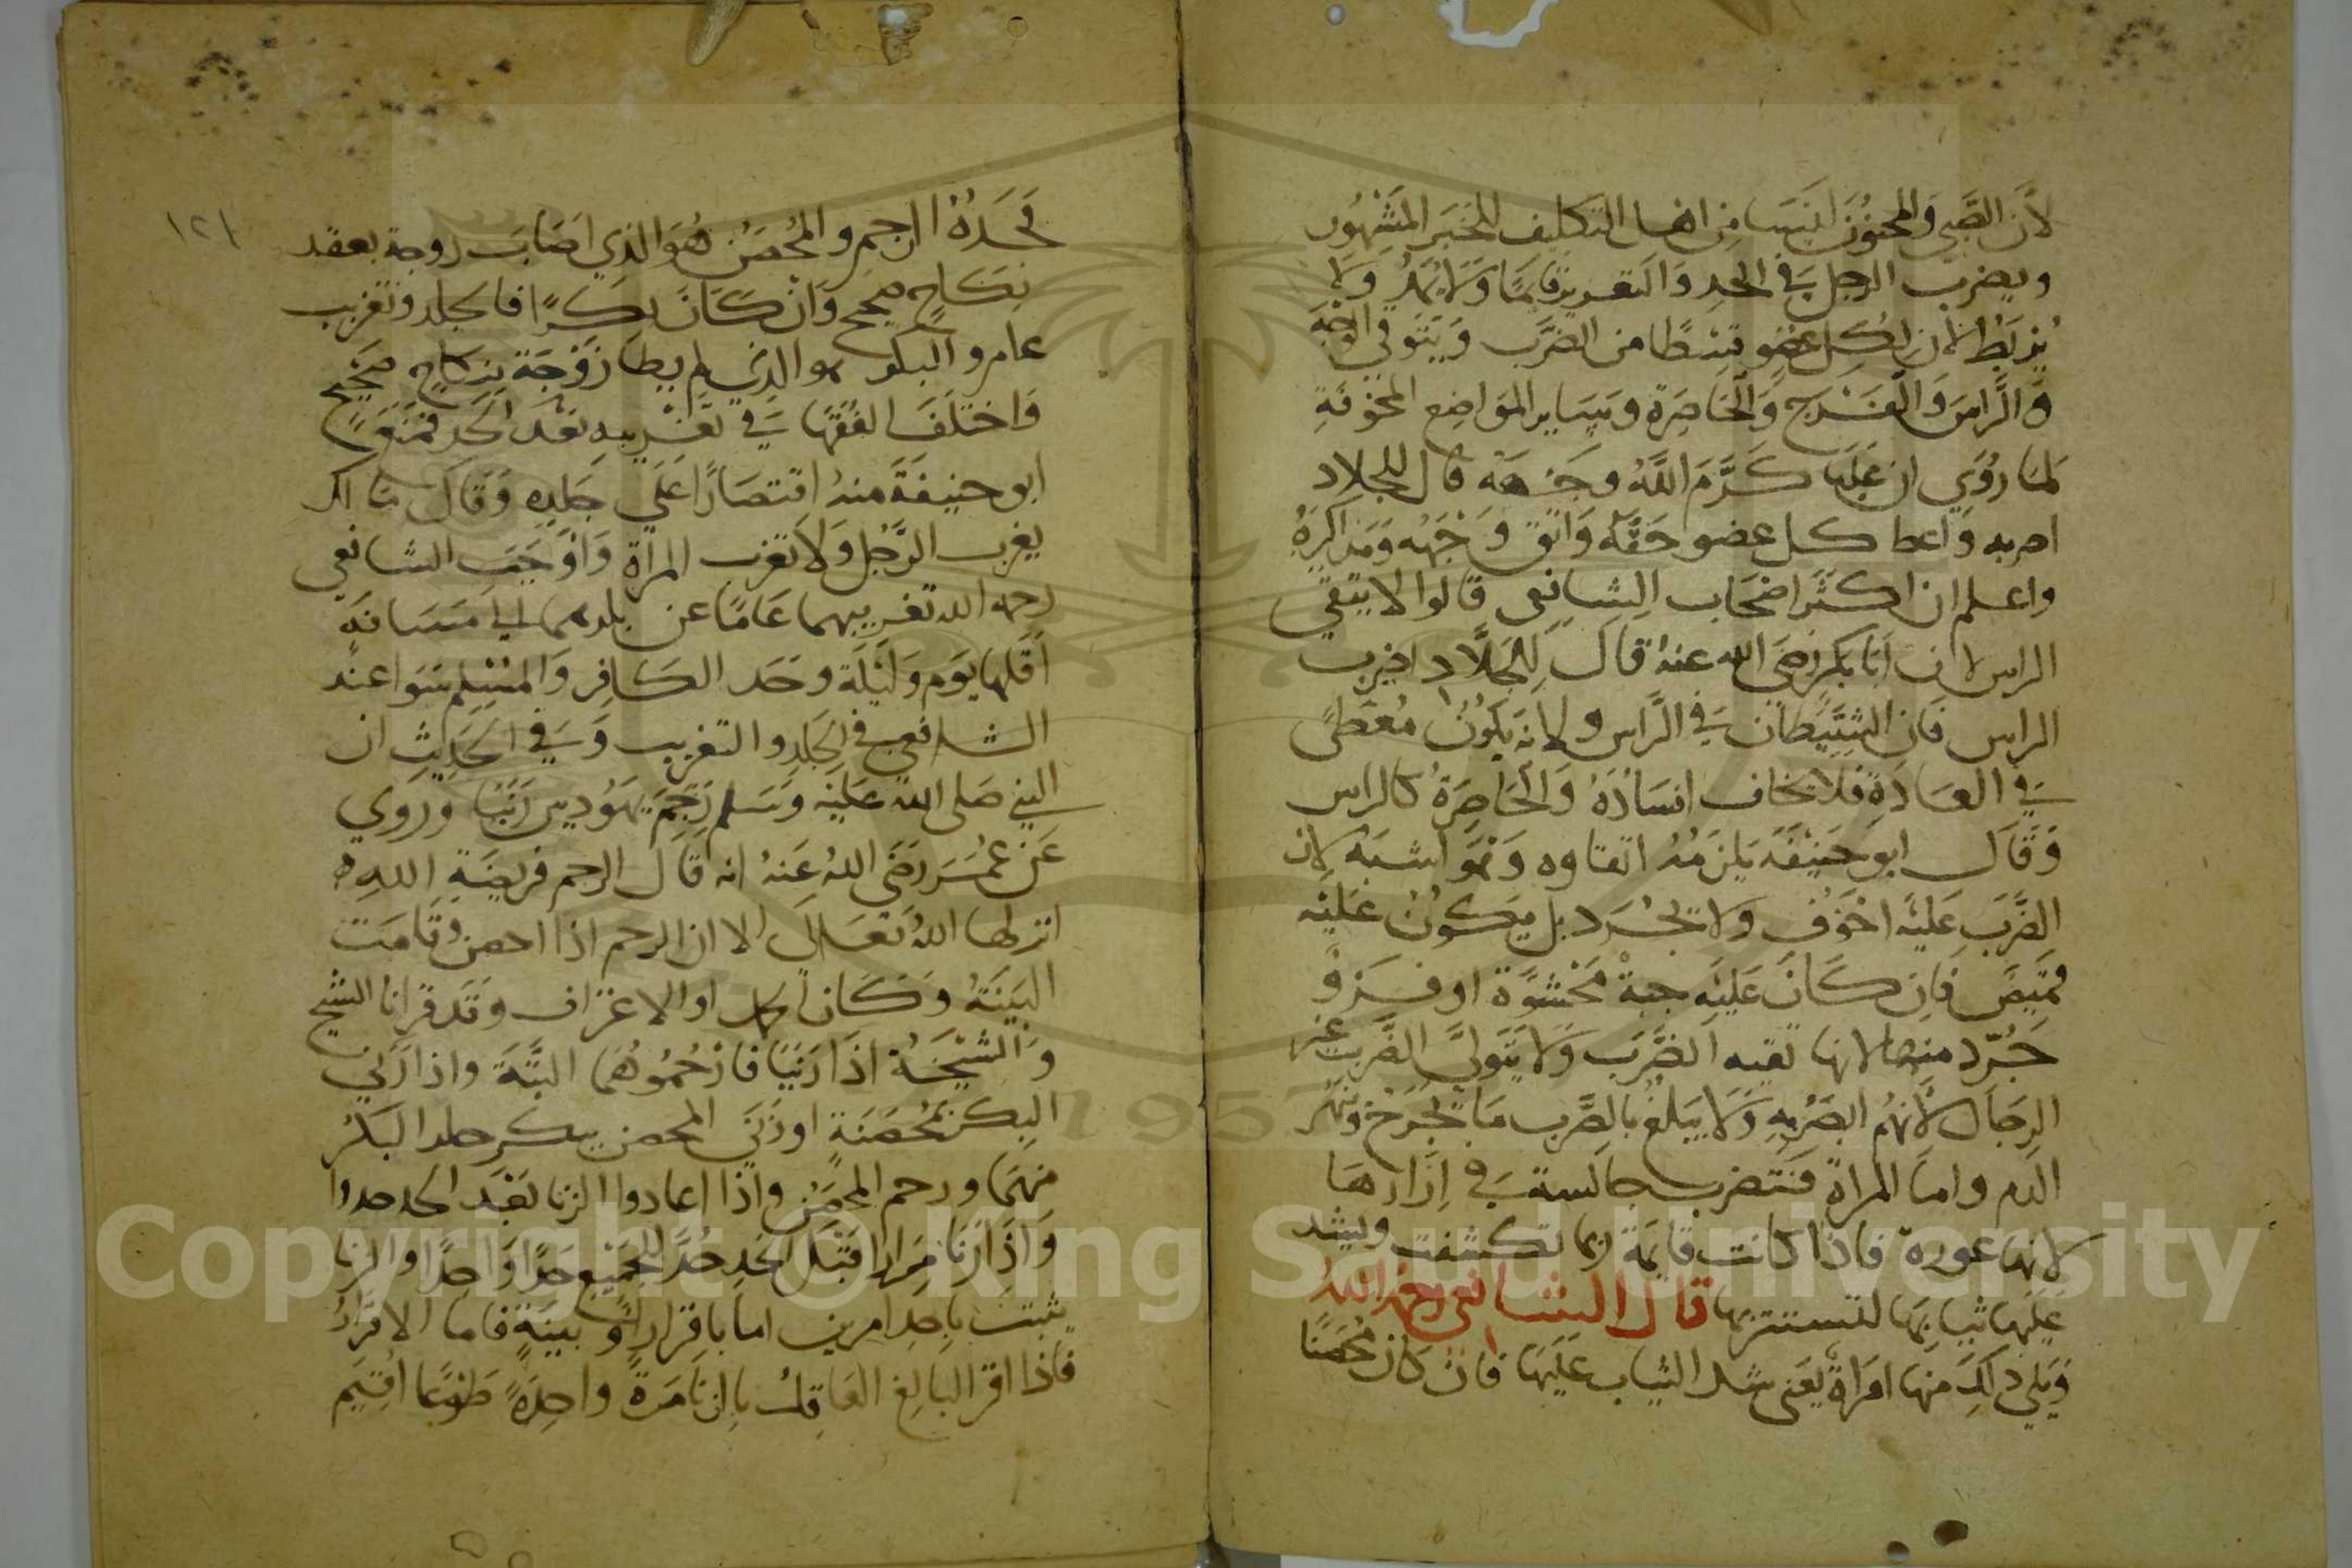 لأن الصبي والمجنون ليسا من اهل التكليف للخبر المشهور
ويضرب الرجل في الحد والتعزير قايمًا ولا يمد ولا
يربط لان لكل عضو قسطًا من الضرب ويتوقي الوجه
والراس والفرج والخاصرة وساير المواضع المخوفة
لما روي ان عليا كرم الله وجهه قال للجلاد
اضربه واعط كل عضو حقه واتق وجهه ومذاكره
واعلم ان اكثر اصحاب الشافعي قالوا لا يتقي
الراس لان ابا بكر رضي الله عنه قال للجلاد اضرب
الراس فان الشيطان في الراس ولانه يكون مغطى
في العادة فلا يخاف افساده والخاصرة كالراس
وقال ابو حنيفة يلزمه اتقاوه وهو اشبه لان
الضرب عليه اخوف ولا يجرد بل يكون عليه
قميص فان كان عليه جبة محشوة او فرو
جرد منها لانها تقيه الضرب ولا يتولى الضرب غير
الرجال لأنهم ابصر به ولا يبلغ بالضرب ما يجرح وينهر
الدم واما المراة فتضرب جالسة في ازارها
لانها عورة فاذا كانت قايمة ربما تكشفت ويشد
عليها ثيابها لتستتر بها قال الشافعي رحمه الله
ويلي ذلك منها امراة يعني شد الثياب عليها فان كان محصنًا
١٢١
فحده الرجم والمحصن هو الذي اصاب زوجة بعقد
نكاح صحيح وان كان بكرًا فالجلد وتغريب
عام والبكر هو الذي لم يطا زوجة بنكاح صحيح
واختلف الفقها في تغريبه بعد الحد فمنع
ابو حنيفة منه اقتصارًا على جلده وقال مالك
يغرب الرجل ولا تغرب المراة واوجب الشافعي
رحمه الله تغريبهما عامًا عن بلدهما الي مسافة
اقلها يوم وليلة وحد الكافر والمسلم سوا عند
الشافعي في الجلد والتغريب وفي الحديث ان
النبي صلى الله عليه وسلم رجم يهوديين زنيا وروي
عن عمر رضي الله عنه انه قال الرجم فريضة الله
انزلها الله تعالى الا ان الرجم اذا احصن وقامت
البينة وكان الحمل او الاعتراف وقد قرانا الشيخ
والشيخة اذا زنيا فارجموهما البتة واذا زني
البكر بمحصنة او زني المحصن ببكر جلد البكر
منهما ورجم المحصن واذا اعادوا الزنا بعد الحد حدوا
واذا زنا مرارا قبل الحد حد للجميع حدًا واحدًا والزنا
يثبت باحد امرين اما باقرار او بينة فاما الاقرار
فاذا اقر البالغ العاقل بالزنا مرة واحدة طوعا اقيم
Copyright © King Saud University
1957